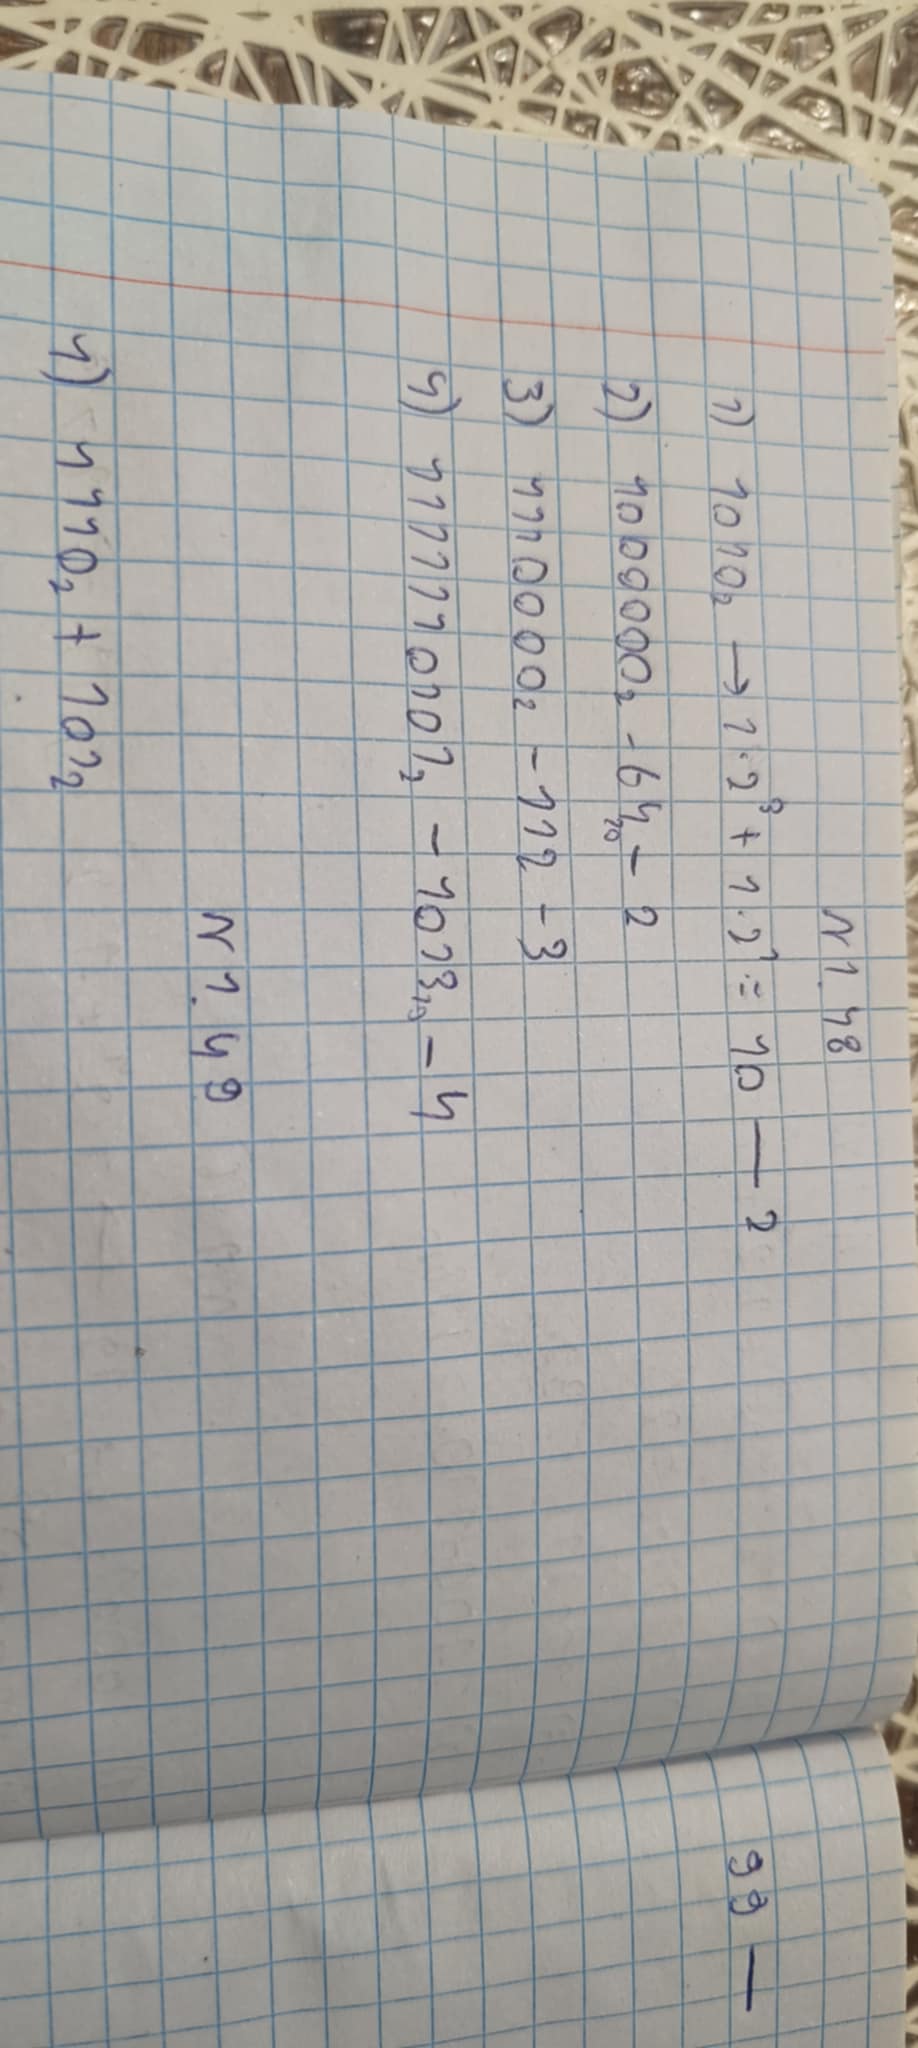 N 1.48
1) 1010₂ → 1·2³ + 1·2¹ = 10 — 2
2) 1000000₂ - 64₁₀ - 2
3) 1110000₂ - 112 - 3
4) 1111110101₂ - 1013₁₀ - 4
N 1.49
1) 1110₂ + 101₂
99 —